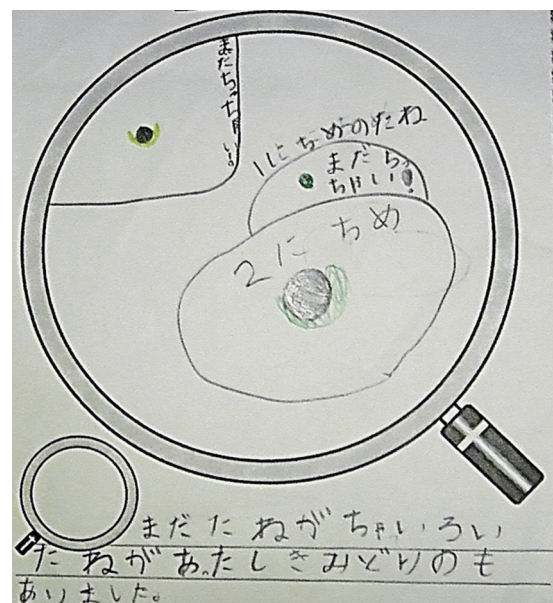 まだちっちゃい。
1にちめのたね
まだち
ちゃい
2にちめ
まだたねがちゃいろい
たねがあったしきみどりのも
ありました。